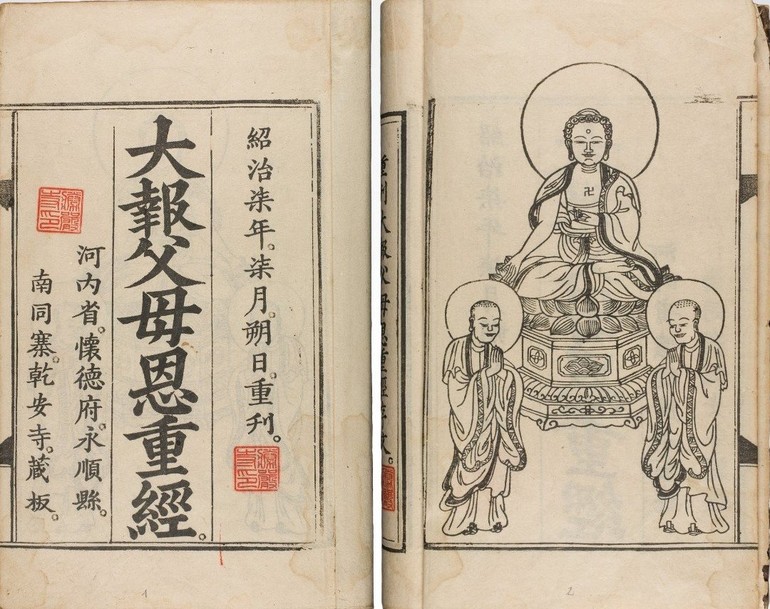 紹治柒年。柒月。朔日。重刊。
大報父母恩重經。
河内省。懷德府。永順縣。
南同寨。乾安寺。蔵板。
1
重刊大報父母恩重經序文。
2